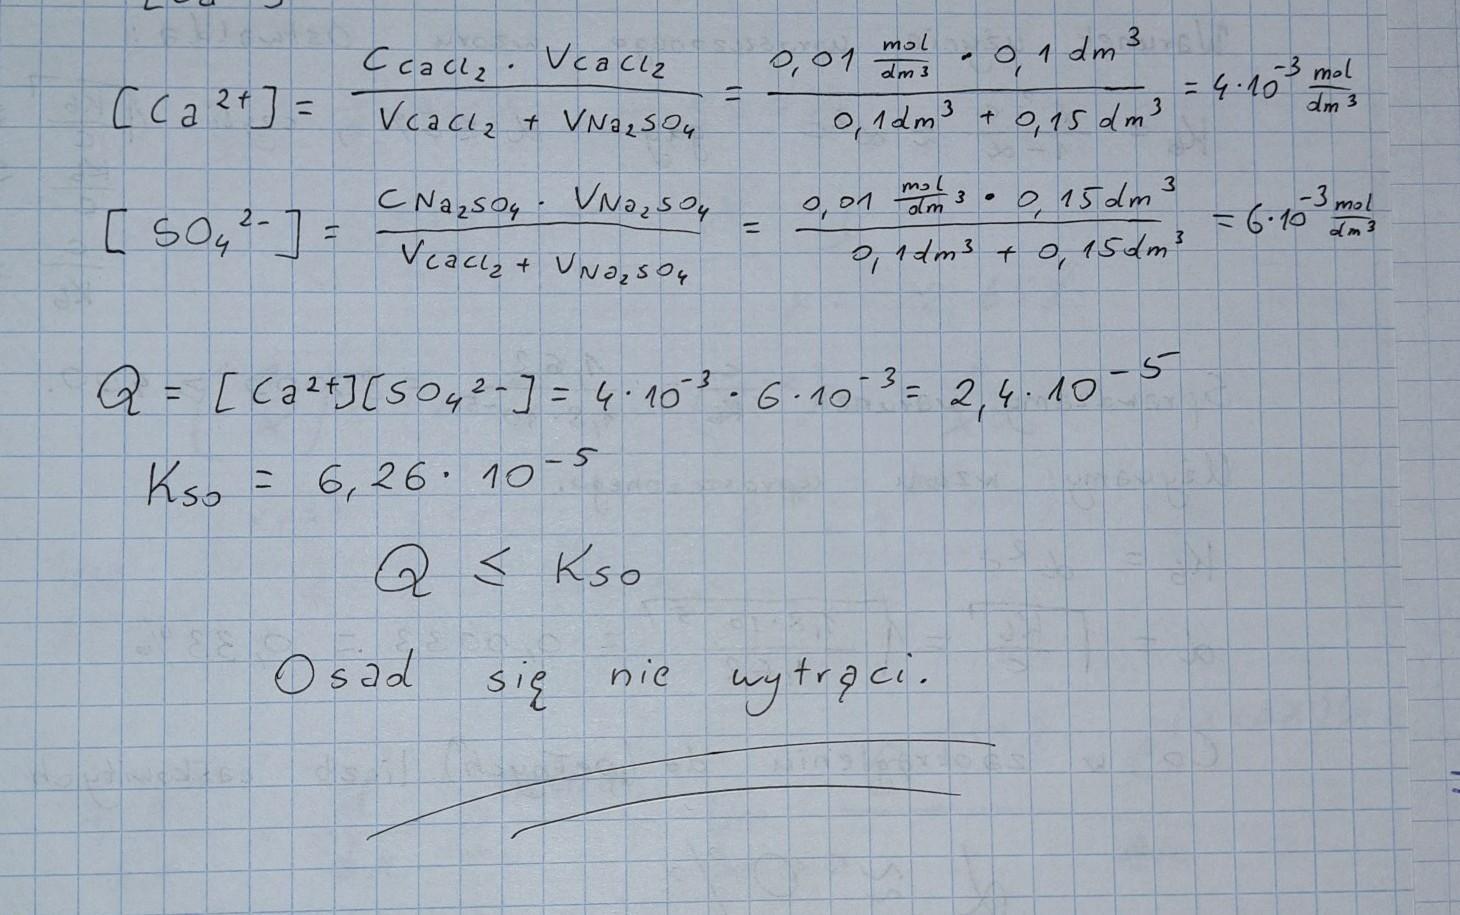 [Ca²⁺] = (C CaCl₂ · V CaCl₂) / (V CaCl₂ + V Na₂SO₄) = (0,01 mol/dm³ · 0,1 dm³) / (0,1 dm³ + 0,15 dm³) = 4·10⁻³ mol/dm³
[SO₄²⁻] = (C Na₂SO₄ · V Na₂SO₄) / (V CaCl₂ + V Na₂SO₄) = (0,01 mol/dm³ · 0,15 dm³) / (0,1 dm³ + 0,15 dm³) = 6·10⁻³ mol/dm³
Q = [Ca²⁺][SO₄²⁻] = 4·10⁻³ · 6·10⁻³ = 2,4·10⁻⁵
Kso = 6,26·10⁻⁵
Q ≤ Kso
Osad się nie wytrąci.